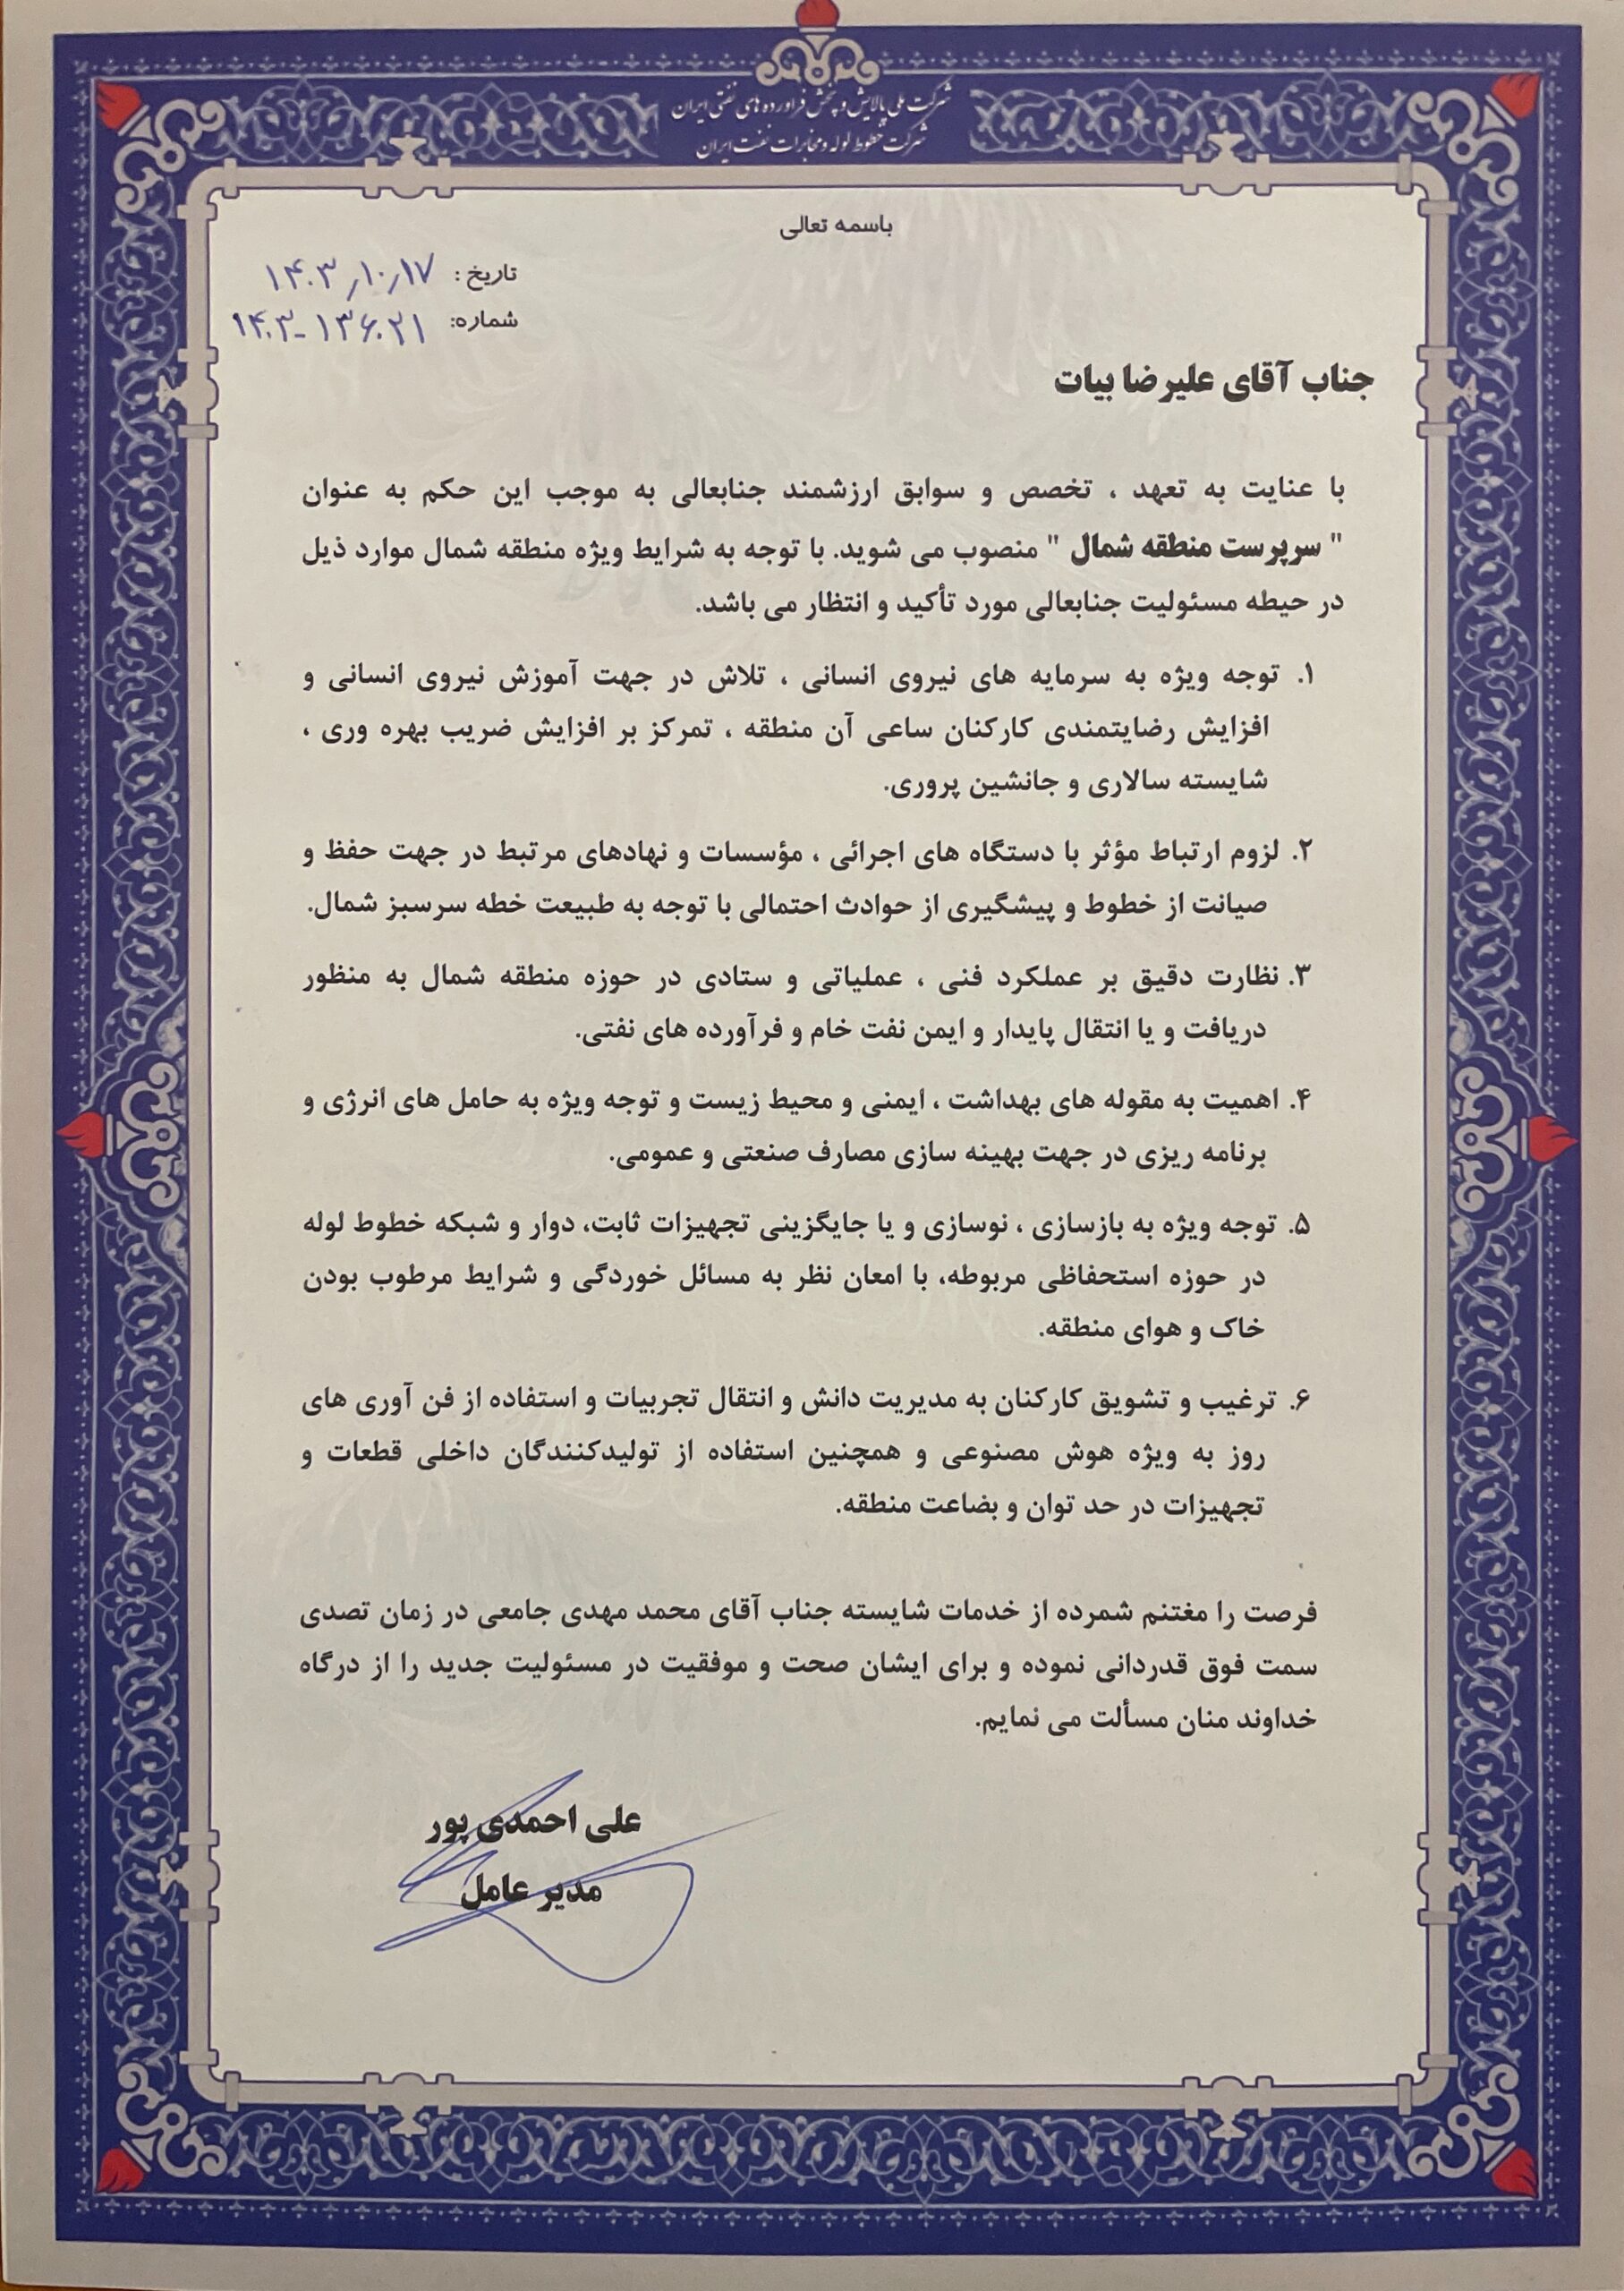 شرکت ملی پالایش و پخش فرآورده های نفتی ایران
شرکت خطوط لوله و مخابرات نفت ایران
باسمه تعالی
تاریخ : ۱۴۰۳/۱۰/۱۷
شماره: ۱۴۰۳-۱۳۶۰۲۱
جناب آقای علیرضا بیات
با عنایت به تعهد ، تخصص و سوابق ارزشمند جنابعالی به موجب این حکم به عنوان
" سرپرست منطقه شمال " منصوب می شوید. با توجه به شرایط ویژه منطقه شمال موارد ذیل
در حیطه مسئولیت جنابعالی مورد تأکید و انتظار می باشد.
۱. توجه ویژه به سرمایه های نیروی انسانی ، تلاش در جهت آموزش نیروی انسانی و
افزایش رضایتمندی کارکنان ساعی آن منطقه ، تمرکز بر افزایش ضریب بهره وری ،
شایسته سالاری و جانشین پروری.
۲. لزوم ارتباط مؤثر با دستگاه های اجرائی ، مؤسسات و نهادهای مرتبط در جهت حفظ و
صیانت از خطوط و پیشگیری از حوادث احتمالی با توجه به طبیعت خطه سرسبز شمال.
۳. نظارت دقیق بر عملکرد فنی ، عملیاتی و ستادی در حوزه منطقه شمال به منظور
دریافت و یا انتقال پایدار و ایمن نفت خام و فرآورده های نفتی.
۴. اهمیت به مقوله های بهداشت ، ایمنی و محیط زیست و توجه ویژه به حامل های انرژی و
برنامه ریزی در جهت بهینه سازی مصارف صنعتی و عمومی.
۵. توجه ویژه به بازسازی ، نوسازی و یا جایگزینی تجهیزات ثابت، دوار و شبکه خطوط لوله
در حوزه استحفاظی مربوطه، با امعان نظر به مسائل خوردگی و شرایط مرطوب بودن
خاک و هوای منطقه.
۶. ترغیب و تشویق کارکنان به مدیریت دانش و انتقال تجربیات و استفاده از فن آوری های
روز به ویژه هوش مصنوعی و همچنین استفاده از تولیدکنندگان داخلی قطعات و
تجهیزات در حد توان و بضاعت منطقه.
فرصت را مغتنم شمرده از خدمات شایسته جناب آقای محمد مهدی جامعی در زمان تصدی
سمت فوق قدردانی نموده و برای ایشان صحت و موفقیت در مسئولیت جدید را از درگاه
خداوند منان مسألت می نمایم.
علی احمدی پور
مدیر عامل